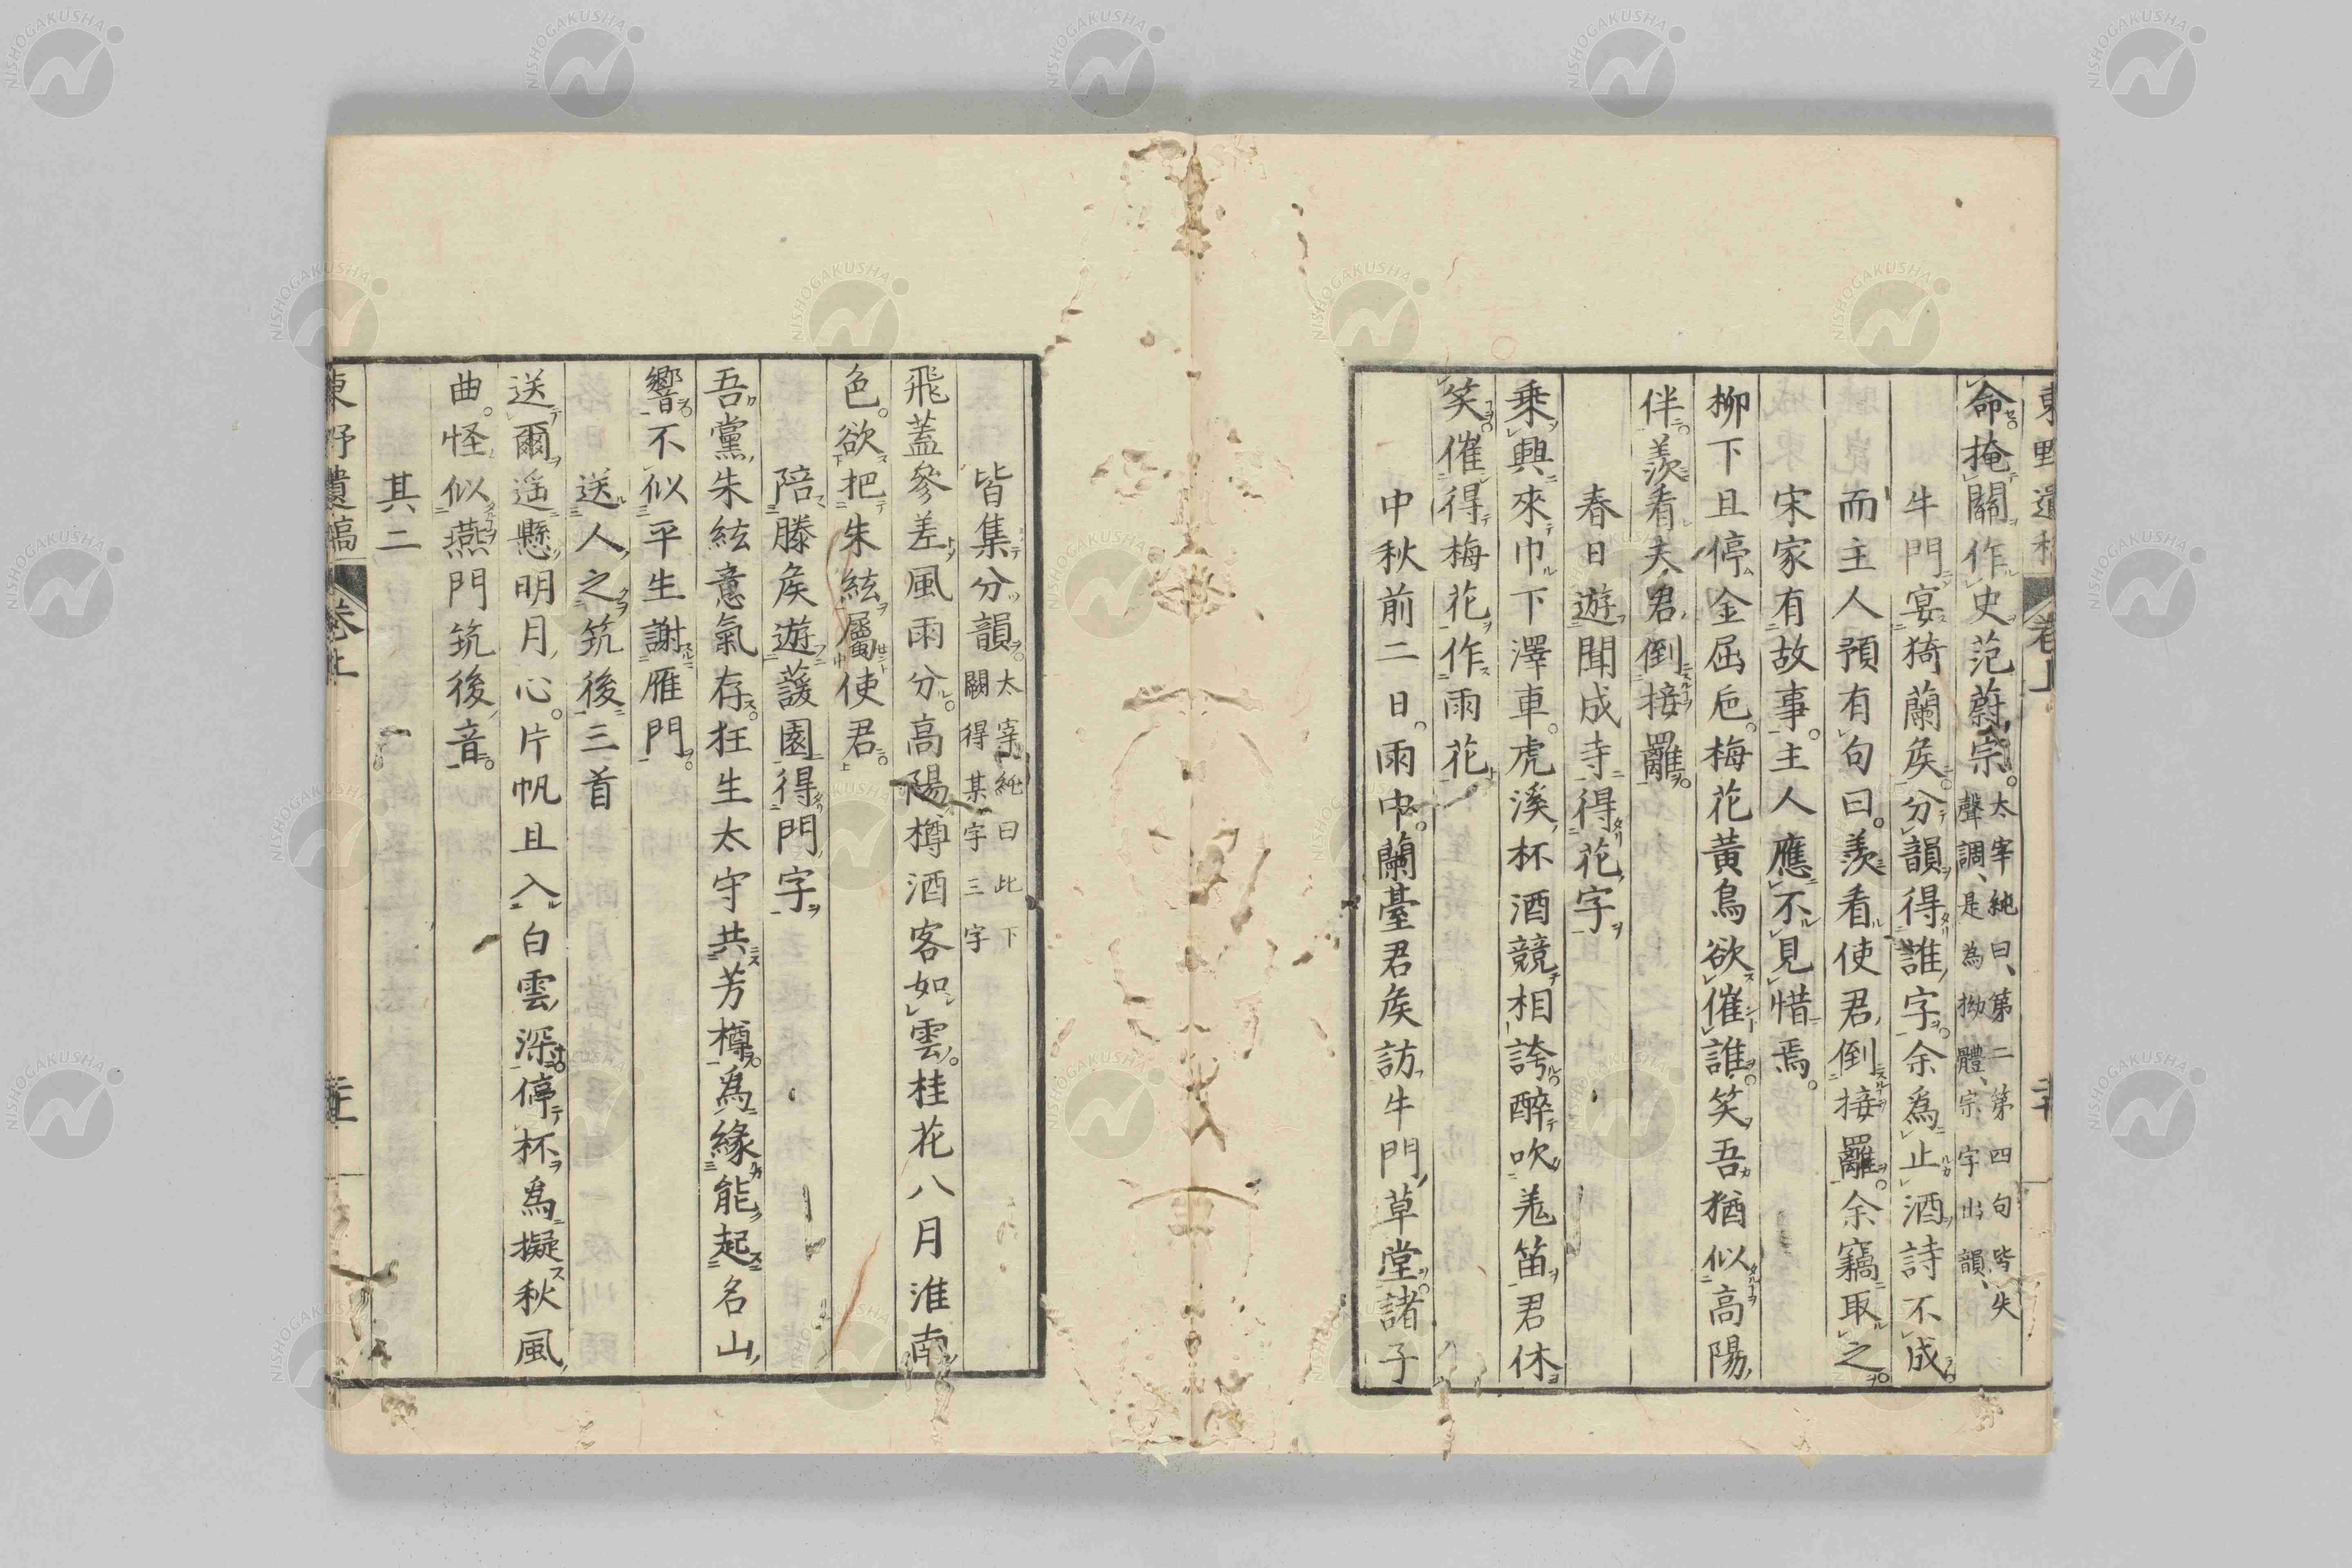 命掩關作史范蔚宗。太宰純曰、第二第四句皆失
聲調、是為拗體、宗字出韻、
牛門宴猗蘭矦分韻得誰字余為止酒詩不成
而主人預有句曰。羨看使君倒接䍦余竊取之
宋家有故事。主人應不見惜焉。
柳下且停金屈卮。梅花黃鳥欲催誰笑吾猶似高陽
伴羨看夫君倒接䍦
春日遊聞成寺得花字
乗興來巾下澤車。虎溪杯酒競相誇醉吹羗笛君休
笑催得梅花作雨花
中秋前二日。雨中。蘭臺君矦訪牛門草堂諸子
皆集分韻。太宰純曰此下
闕得某字三字
飛蓋參差風雨分。高陽樽酒客如雲。桂花八月淮南
色。欲把朱絃屬使君。
陪滕矦遊蘐園得門字
吾黨朱絃意氣存。狂生太守共芳樽。為緣能起名山
響。不似平生謝雁門。
送人之筑後三首
送爾遥懸明月心。片帆且入白雲深。停杯為擬秋風
曲。怪似燕門筑後音。
其二
東野遺稿 卷上
NISHOGAKUSHA